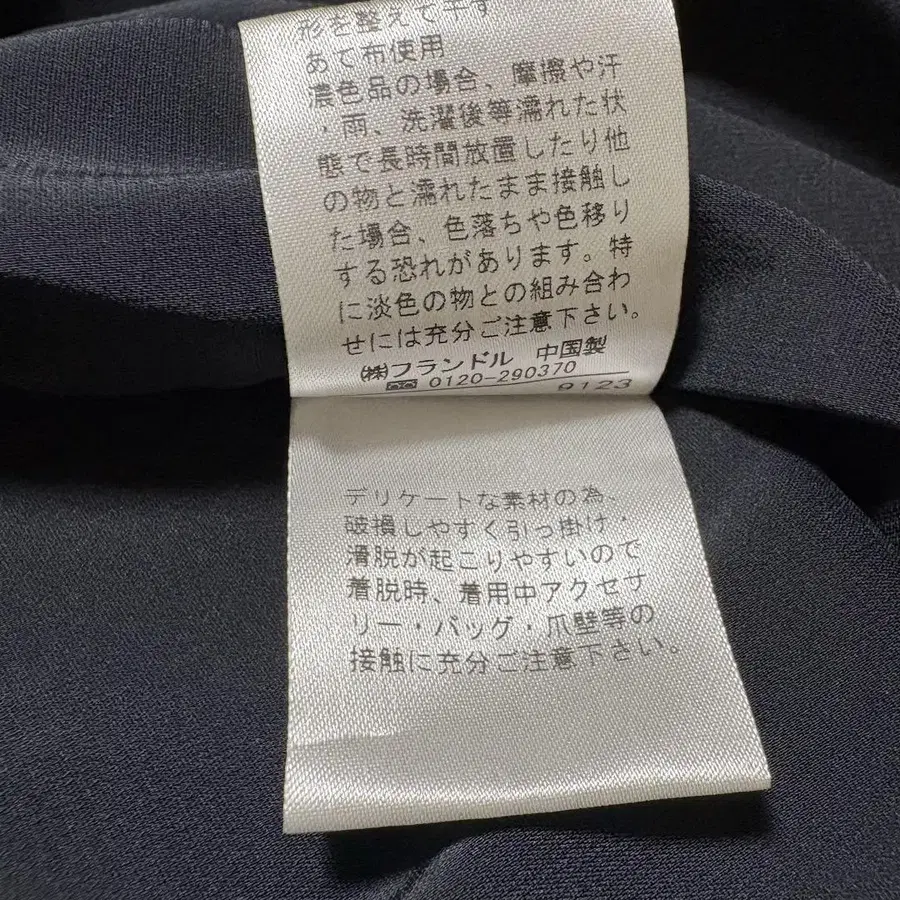 形を整えて干す
あて布使用
濃色品の場合、摩擦や汗
・雨、洗濯後等濡れた状
態で長時間放置したり他
の物と濡れたまま接触し
た場合、色落ちや色移り
する恐れがあります。特
に淡色の物との組み合わ
せには充分ご注意下さい。
㈱フランドル 中国製
0120-290370
9123
デリケートな素材の為、
破損しやすく引っ掛け・
滑脱が起こりやすいので
着脱時、着用中アクセサ
リー・バッグ・爪壁等の
接触に充分ご注意下さい。